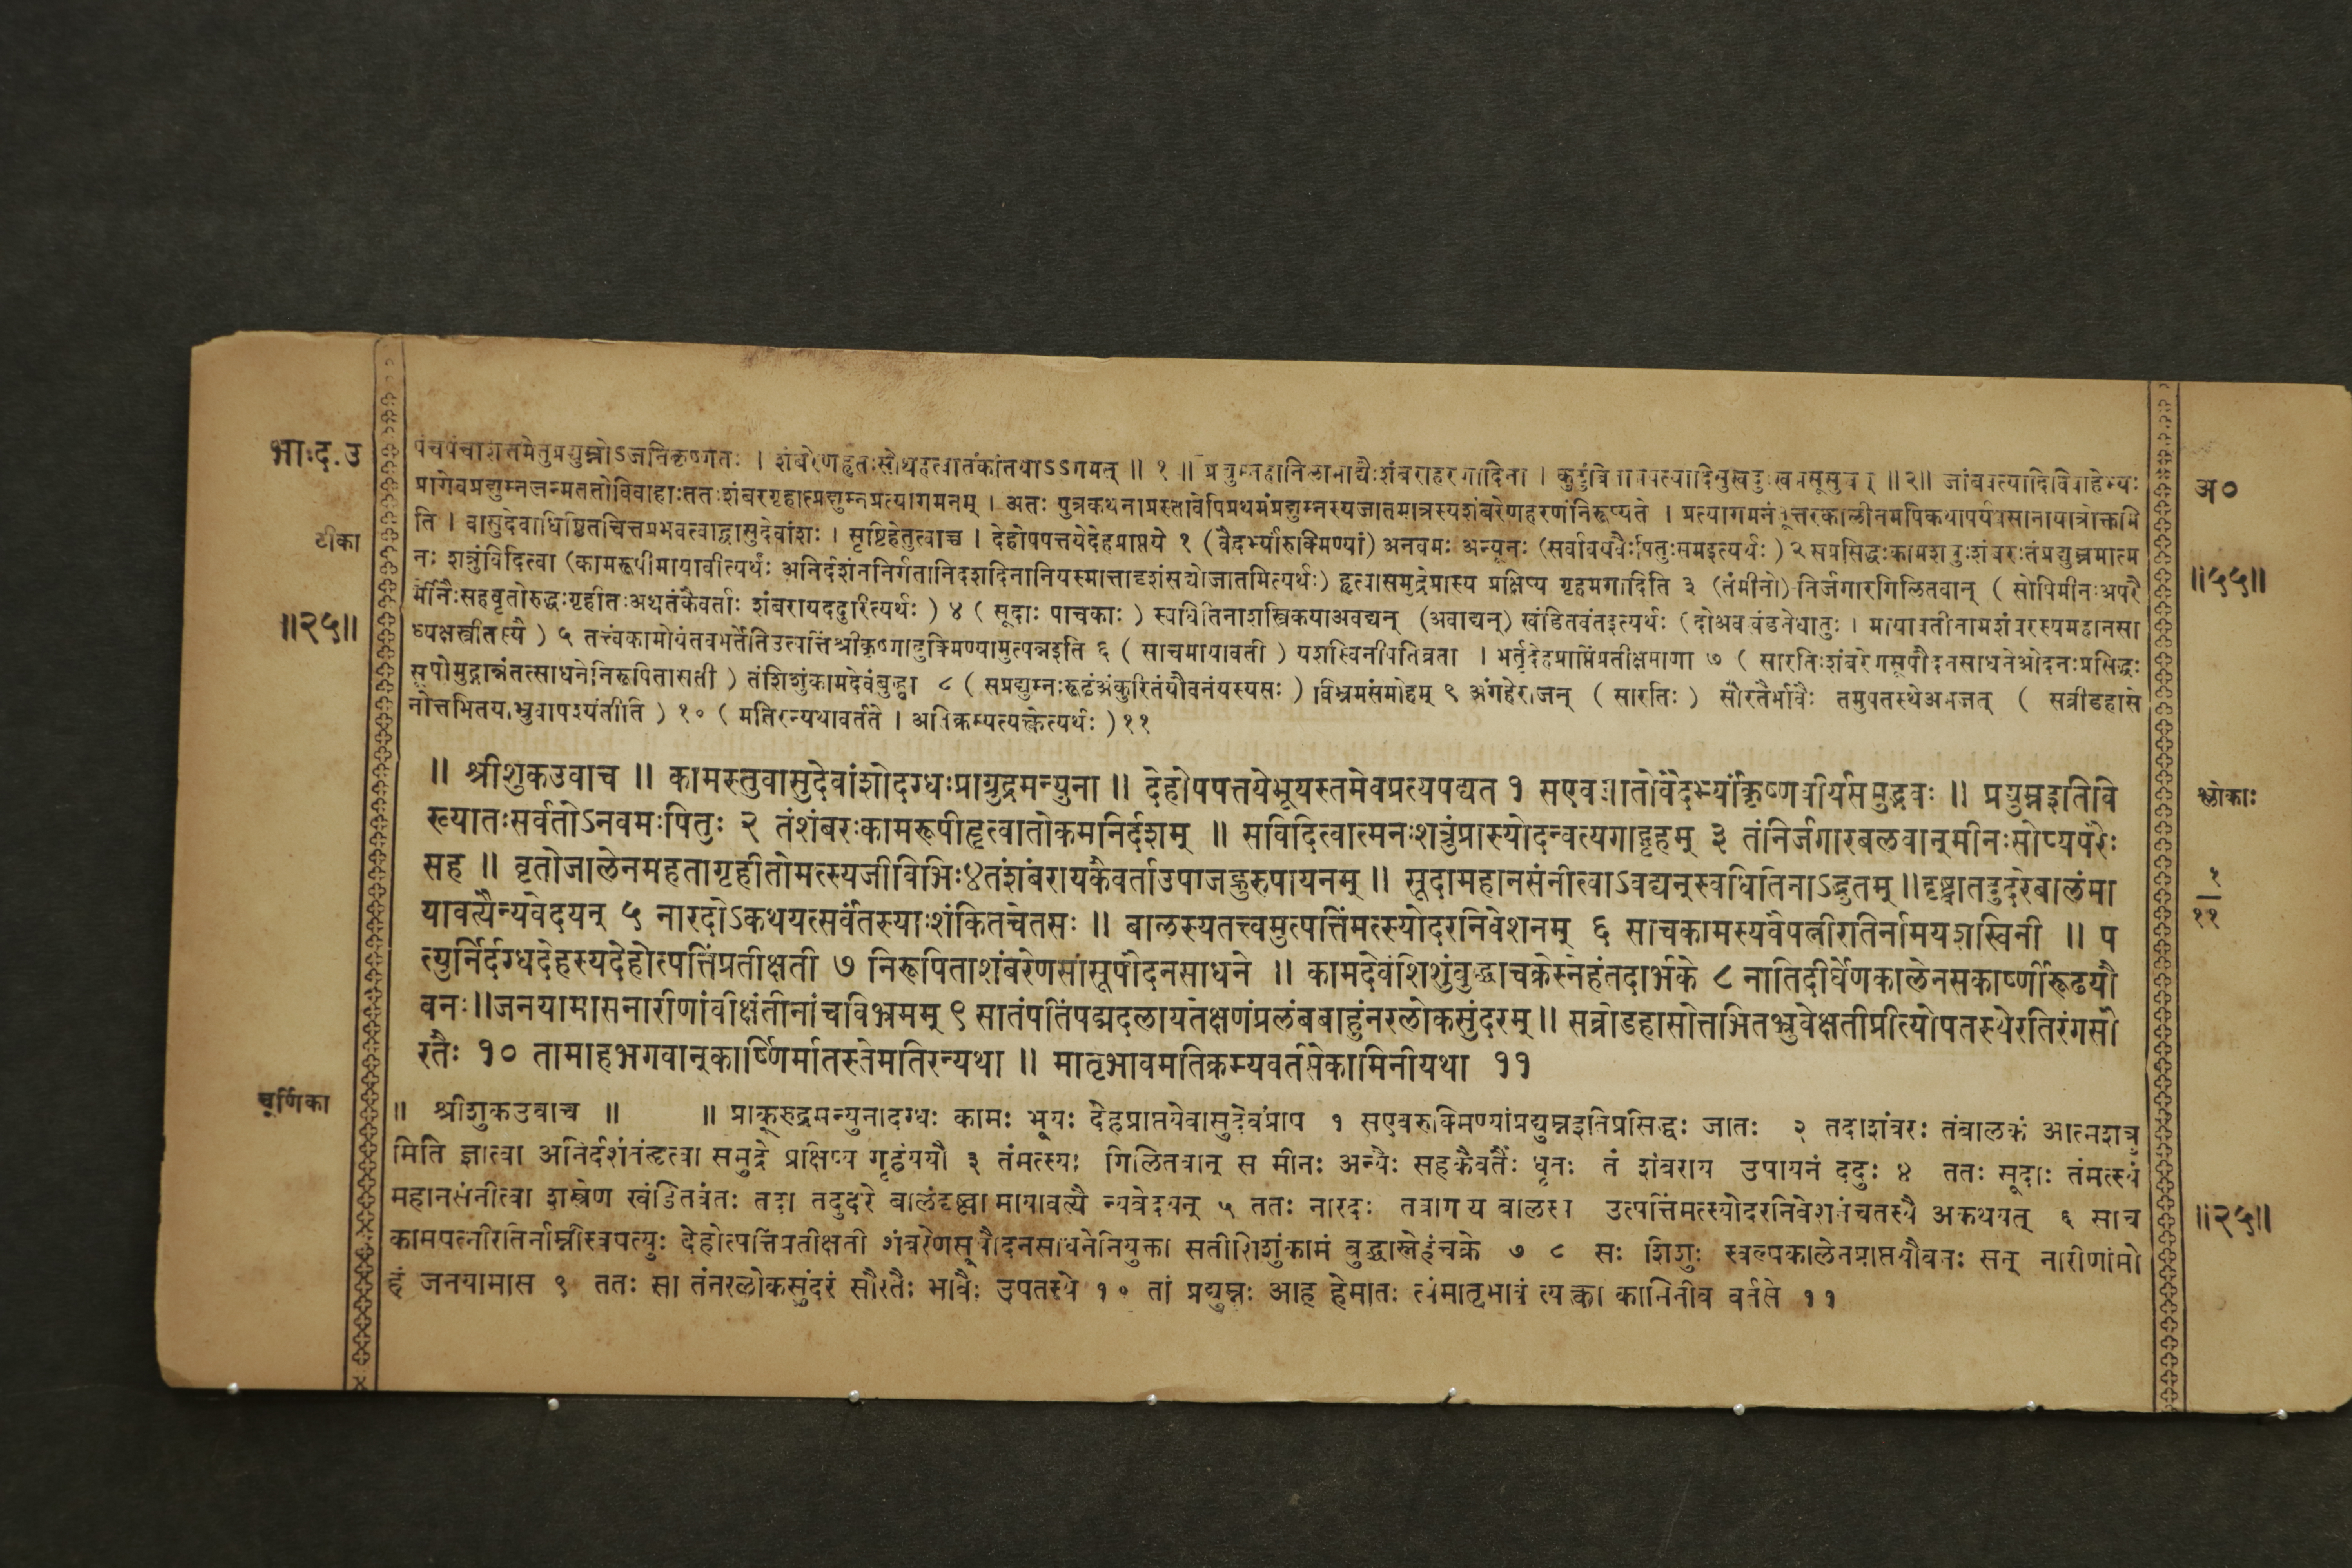 भाःद.उ
पंचपंचाशत्तमेतुप्रद्युम्नोऽजनिकृष्णतः । शंबरेणहृतःसोथहत्वातंकांतयाऽऽगमत् ॥ १ ॥ प्रद्युम्नहानिलाभाद्यैःशंबराहरणादिना । ॥२॥ जांबवत्यादिविवाहेभ्यः
अ०
प्रागेवप्रद्युम्नजन्मततोविवाहाःततःशंबरगृहात्प्रद्युम्नप्रत्यागमनम् । अतः पुत्रकथनाप्रस्तावेपिप्रथमंप्रद्युम्नस्यजातमात्रस्यशंबरेणहरणंनिरूप्यते । प्रत्यागमनंतूत्तरकालीनमपिकथापर्यवसानायात्रोक्तमि
टीका
ति । वासुदेवाधिष्ठितचित्तप्रभवत्वाद्वासुदेवांशः । सृष्टिहेतुत्वाच्च । देहोपपत्तयेदेहप्राप्तये १ (वैदर्भ्यांरुक्मिण्यां) अनवमः अन्यूनः (सर्वावयवैःपितुःसमइत्यर्थः) २ सप्रसिद्धःकामशत्रुःशंबरःतंप्रद्युम्नमात्म
॥५५॥
नः शत्रुंविदित्वा (कामरूपीमायावीत्यर्थः अनिर्दशंननिर्गतानिदशदिनानियस्मात्तादृशंसद्योजातमित्यर्थः) हृत्वासमुद्रेप्रास्य प्रक्षिप्य गृहमगादिति ३ (तंमीनो) निर्जगारगिलितवान् ( सोपिमीनःअपरै
॥२५॥
र्मीनैःसहवृतोरुद्धःगृहीतःअथतंकैवर्ताः शंबरायददुरित्यर्थः ) ४ ( सूदाः पाचकाः ) स्वधितिनाशस्त्रिकयाअवद्यन् (अवाद्यन्) खंडितवंतइत्यर्थः (दोअवखंडनेधातुः । मायावतीनामशंबरस्यमहानसा
ध्यक्षस्त्रीतस्यै ) ५ तत्त्वंकामोयंतवभर्तेतिउत्पत्तिंश्रीकृष्णाद्रुक्मिण्यामुत्पन्नइति ६ ( साचमायावती ) यशस्विनीपतिव्रता । भर्तृदेहप्राप्तिंप्रतीक्षमाणा ७ ( सारतिःशंबरेणसूपौदनसाधनेओदनःप्रसिद्धः
सूपोमुद्गान्नंतत्साधनेनिरूपितासती ) तंशिशुंकामदेवंबुद्ध्वा ८ ( सप्रद्युम्नःरूढंअंकुरितंयौवनंयस्यसः ) विभ्रमसंमोहम् ९ अंगहेराजन् ( सारतिः ) सौरतैर्भावैः तमुपतस्थेअभजत् ( सव्रीडहासे
नोत्तभितया ) १० ( मतिरन्यथावर्तते । अतिक्रम्यत्यक्त्वेत्यर्थः ) ११
॥ श्रीशुकउवाच ॥ कामस्तुवासुदेवांशोदग्धःप्राग्रुद्रमन्युना ॥ देहोपपत्तयेभूयस्तमेवप्रत्यपद्यत १ सएवजातोवैदर्भ्यांकृष्णवीर्यसमुद्भवः ॥ प्रद्युम्नइतिवि
श्लोकाः
ख्यातःसर्वतोऽनवमःपितुः २ तंशंबरःकामरूपीहृत्वातोकमनिर्दशम् ॥ सविदित्वात्मनःशत्रुंप्रास्योदन्वत्यगाद्गृहम् ३ तंनिर्जगारबलवान्मीनःसोप्यपरैः
सह ॥ वृतोजालेनमहतागृहीतोमत्स्यजीविभिः४तंशंबरायकैवर्ताउपाजह्रुरुपायनम् ॥ सूदामहानसंनीत्वाऽवद्यन्स्वधितिनाऽद्भुतम् ॥दृष्ट्वातदुदरेबालंमा
१
११
यावत्यैन्यवेदयन् ५ नारदोऽकथयत्सर्वंतस्याःशंकितचेतसः ॥ बालस्यतत्त्वमुत्पत्तिंमत्स्योदरनिवेशनम् ६ साचकामस्यवैपत्नीरतिर्नामयशस्विनी ॥ प
त्युर्निर्दग्धदेहस्यदेहोत्पत्तिंप्रतीक्षती ७ निरूपिताशंबरेणसासूपौदनसाधने ॥ कामदेवंशिशुंबुद्ध्वाचक्रेस्नेहंतदार्भके ८ नातिदीर्घेणकालेनसकार्ष्णीरूढयौ
वनः॥जनयामासनारीणांवीक्षंतीनांचविभ्रमम् ९ सातंपतिंपद्मदलायतेक्षणंप्रलंबबाहुंनरलोकसुंदरम्॥ सव्रीडहासोत्तभितभ्रुवेक्षतीप्रीत्योपतस्थेरतिरंगसौ
रतैः १० तामाहभगवान्कार्ष्णिर्मातस्तेमतिरन्यथा ॥ मातृभावमतिक्रम्यवर्तसेकामिनीयथा ११
चूर्णिका
॥ श्रीशुकउवाच ॥ ॥ प्राक्रुद्रमन्युनादग्धः कामः भूयः देहप्राप्तयेवासुदेवंप्राप १ सएवरुक्मिण्यांप्रद्युम्नइतिप्रसिद्धः जातः २ तदाशंबरः तंबालकं आत्मशत्रु
मिति ज्ञात्वा अनिर्दशंतंहृत्वा समुद्रे प्राक्षिप्य गृहंययौ ३ तंमत्स्यः गिलितवान् स मीनः अन्यैः सहकैवर्तैः धृतः तं शंबराय उपायनं ददुः ४ ततः सूदाः तंमत्स्यं
महानसंनीत्वा शस्त्रेण खंडितवंतः तदा तदुदरे बालंदृष्ट्वा मायावत्यै न्यवेदयन् ५ ततः नारदः तत्रागत्य बालस्य उत्पत्तिंमत्स्योदरनिवेशनंचतस्यै अकथयत् ६ साच
॥२५॥
कामपत्नीरतिर्नाम्नीस्वपत्युः देहोत्पत्तिंप्रतीक्षती शंबरेणसूपौदनसाधनेनियुक्ता सतीशिशुंकामं बुद्ध्वास्नेहंचक्रे ७ ८ सः शिशुः स्वल्पकालेनप्राप्तयौवनः सन् नारीणांमो
हं जनयामास ९ ततः सा तंनरलोकसुंदरं सौरतैः भावैः उपतस्थे १० तां प्रद्युम्नः आह हेमातः त्वंमातृभावं त्यक्त्वा कामिनीव वर्तसे ११